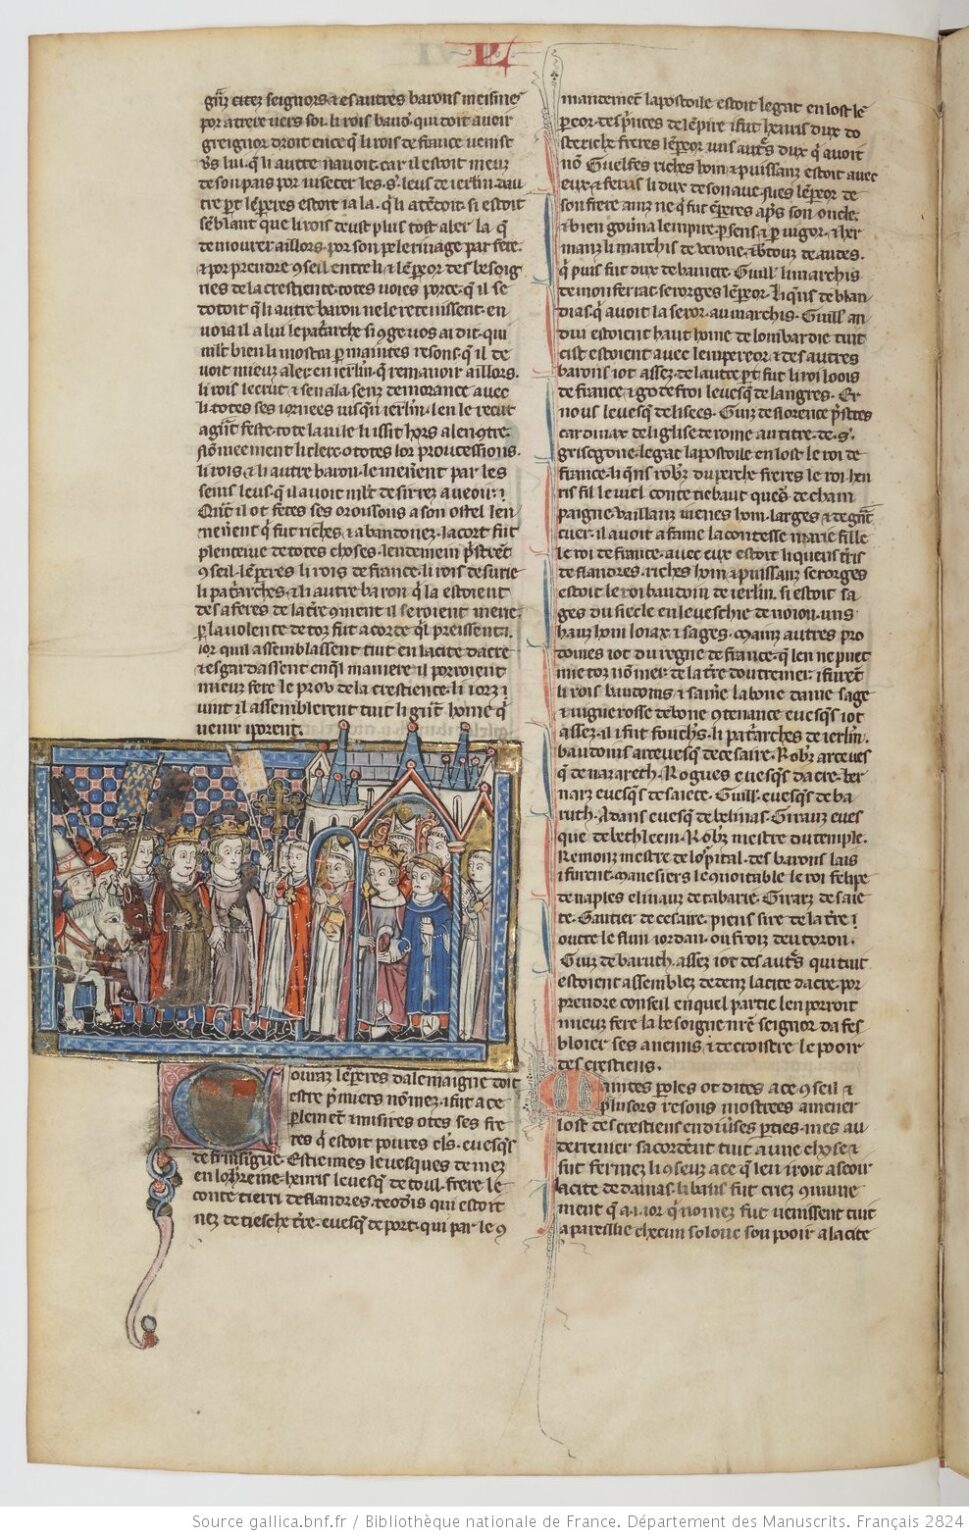 citez seignors & es autres barons meismes
por atreire vers soi. li rois baud̄. qui doit avoir
greignor droit en ce q̄ li rois de france venist
vs̄ lui. q̄ li autre navoit. car il estoit meuz
de son pais por viseter les .s. leus de ierl̄m. dau
tre pt lēperes estoit ia la. q̄l atēdoit. si estoit
sēblant que li rois deust plus tost aler la. q̄
demourer aillors. por son pelerinage parfere.
& por prendre 9seil entre li & lēpeor des besoig
nes de la crestiente. totes voies porce. q̄ il se
dotoit q̄ li autre baron ne le retenissent. en
voia il a lui le patriarche si 9ge vos ai dit. qui
ml̄t bien li mostra p maintes resons. q̄ il de
voit mieuz aler en ierl̄m. q̄ remanoir aillors.
li rois le crut & sen ala. senz demorance avec
li. totes ses iornees iusq̄n ierl̄m. len le recut
a gn̄t feste. tote la vile li issit hors alencōtre.
nōmeement li clere o totes lor proucessions.
li rois. & li autre baron. le menent par les
seins leus. q̄ il avoit ml̄t desirrez a veoir.
Qn̄t il ot fetes ses oroissons a son ostel len
menent q̄ fut riches & abandonez. la cort fut
plentive de totes choses. lendemein pstrēt
9seil. lēperes li rois de france. li rois de surie
li patriarches. & li autre baron q̄ la estoient
des aferes de la tre 9ment il seroient mene.
p la volente de toz fut acorde q̄l preissent .i.
ior quil assemblassent tuit en la cite dacre
& esgardassent en q̄l maniere il porroient
mieuz fere le prou de la crestiente. li iorz
vint il assemblerent tuit li gn̄t home q̄
venir i porent.
Conraz lēperes dalemaigne doit
estre pmiers nōmez. i fut a ce
plemēt & misires otes ses fre
res q̄ estoit poures clers. evesq̄s
de frinsigue. Estienes levesques de mez
en loherreine. henris levesq̄ de toul. frere le
conte tierri de flandres. teodins qui estoit
nez de tiesche tre. evesq̄ de port. qui par le 9
mandemēt lapostoile estoit legat en lost le
peor. des princes de lēpire i fut henris dux do
steriche freres lēpeor uns autrs dux q̄ avoit
nō Guelfes riches hom & puissanz estoit avec
eux & ferris li dux de soaue. nies lēpeor de
son frere ainz ne q̄ fut ēperes aps son oncle.
& bien govna lempire. p sens & p vigor. & her
manz li marchis de verone. & bertouz de andes.
q̄ puis fut dux de baviere. Guill. li marchis
de monferrat. serorges lēpeor. li q̄ns de blan
dras. q̄ avoit la seror au marchis. Guill. an
dui estoient haut home de lombardie tuit
cist estoient avec lempereor & des autres
barons iot assez. de lautre pt fut li roi loois
de france. & godefroi levesq̄ de langres. Er
nous levesq̄ de lisees. Guiz de florence pstres
cardinax de liglise de rome au titre. de .s.
grisegone. legat lapostoile en lost le roi de
france. li q̄ns robz du perche freres le roi. hen
ris fil le viel conte tiebaut ques de cham
paigne. vaillanz juenes hom. larges & de gn̄t
cuer. il avoit a fame la contesse marie fille
le roi de france. avec eux estoit li queus tirris
de flandres. riches hom & puissanz serorges
estoit le roi baudoin de ierl̄m. si estoit sa
ges du siecle en leveschie de noion. uns
hauz hom loiax & sages. mainz autres pro
domes iot du regne de france. q̄ len ne puet
mie toz nōmer. de la tre doutremer. i furēt
li rois baudoins & sa mere la bone dame sage
& viguerosse de bone 9tenance evesq̄s iot
assez. il i fut fouchrs. li patriarches de ierl̄m.
baudoins arcevesq̄ de cesaire. Robz arceves
q̄ de nazareth. Rogues evesq̄s dacre. ber
narz evesq̄s de saiete. Guill. evesq̄s de ba
ruth. Adans evesq̄ de belinas. Girauz eves
que de bethleem. Robz mestre du temple.
Remonz mestre de lospital. des barons lais
i furent. manesiers le quoitable le roi felipe
de naples elinanz de tabarie. Girarz de saie
te. Gautier de cesaire. piens sire de la tre
outre le flun iordan. onfroiz deu toron.
Guiz de baruth. assez iot des autrs qui tuit
estoient assemblez dedenz la cite dacre. por
prendre conseil en quel partie len porroit
mieuz fere la besoigne nre seignor da fes
bloier ses anemis & de croistre le pooir
des crestiens.
Maintes paroles ot dites a ce 9seil &
plusors resons mostrees a mener
lost des crestiens en diverses parties. mes au
derrenier sacordēt tuit a une chose &
fut fermez li 9seuz a ce q̄ len iroit aseoir
la cite de damas. li bans fut criez 9mune
ment q̄ a .i. ior q̄ nomez fut venissent tuit
apareillie chascun solonc son pooir a la cite
Source gallica.bnf.fr / Bibliothèque nationale de France. Département des Manuscrits. Français 2824